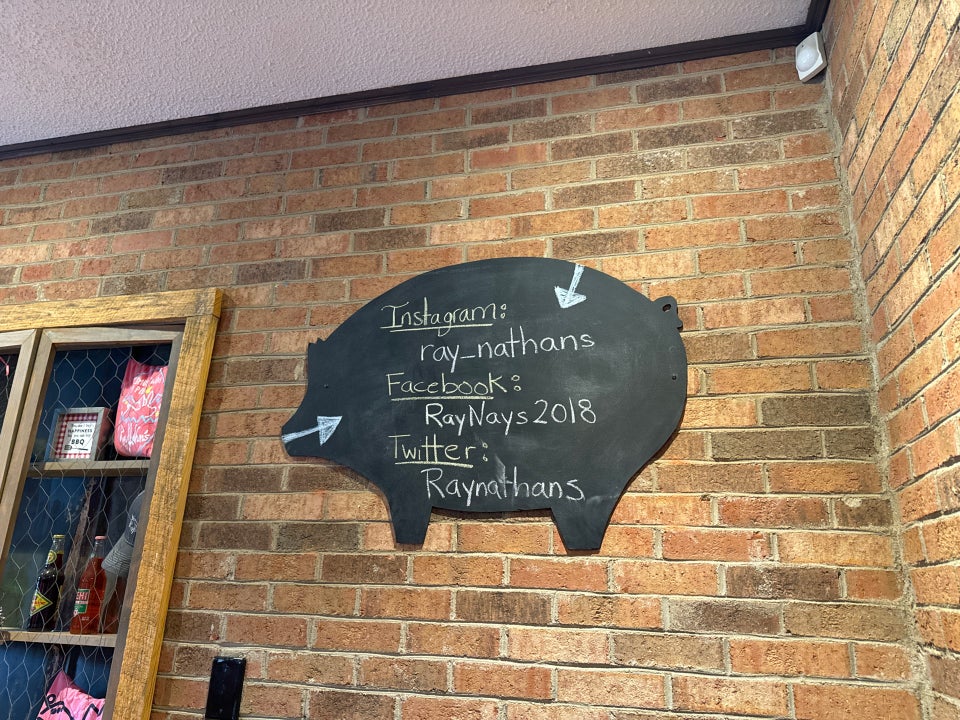 Instagram:
ray_nathans
Facebook:
RayNays2018
Twitter:
Raynathans
HAPPINESS
BBQ